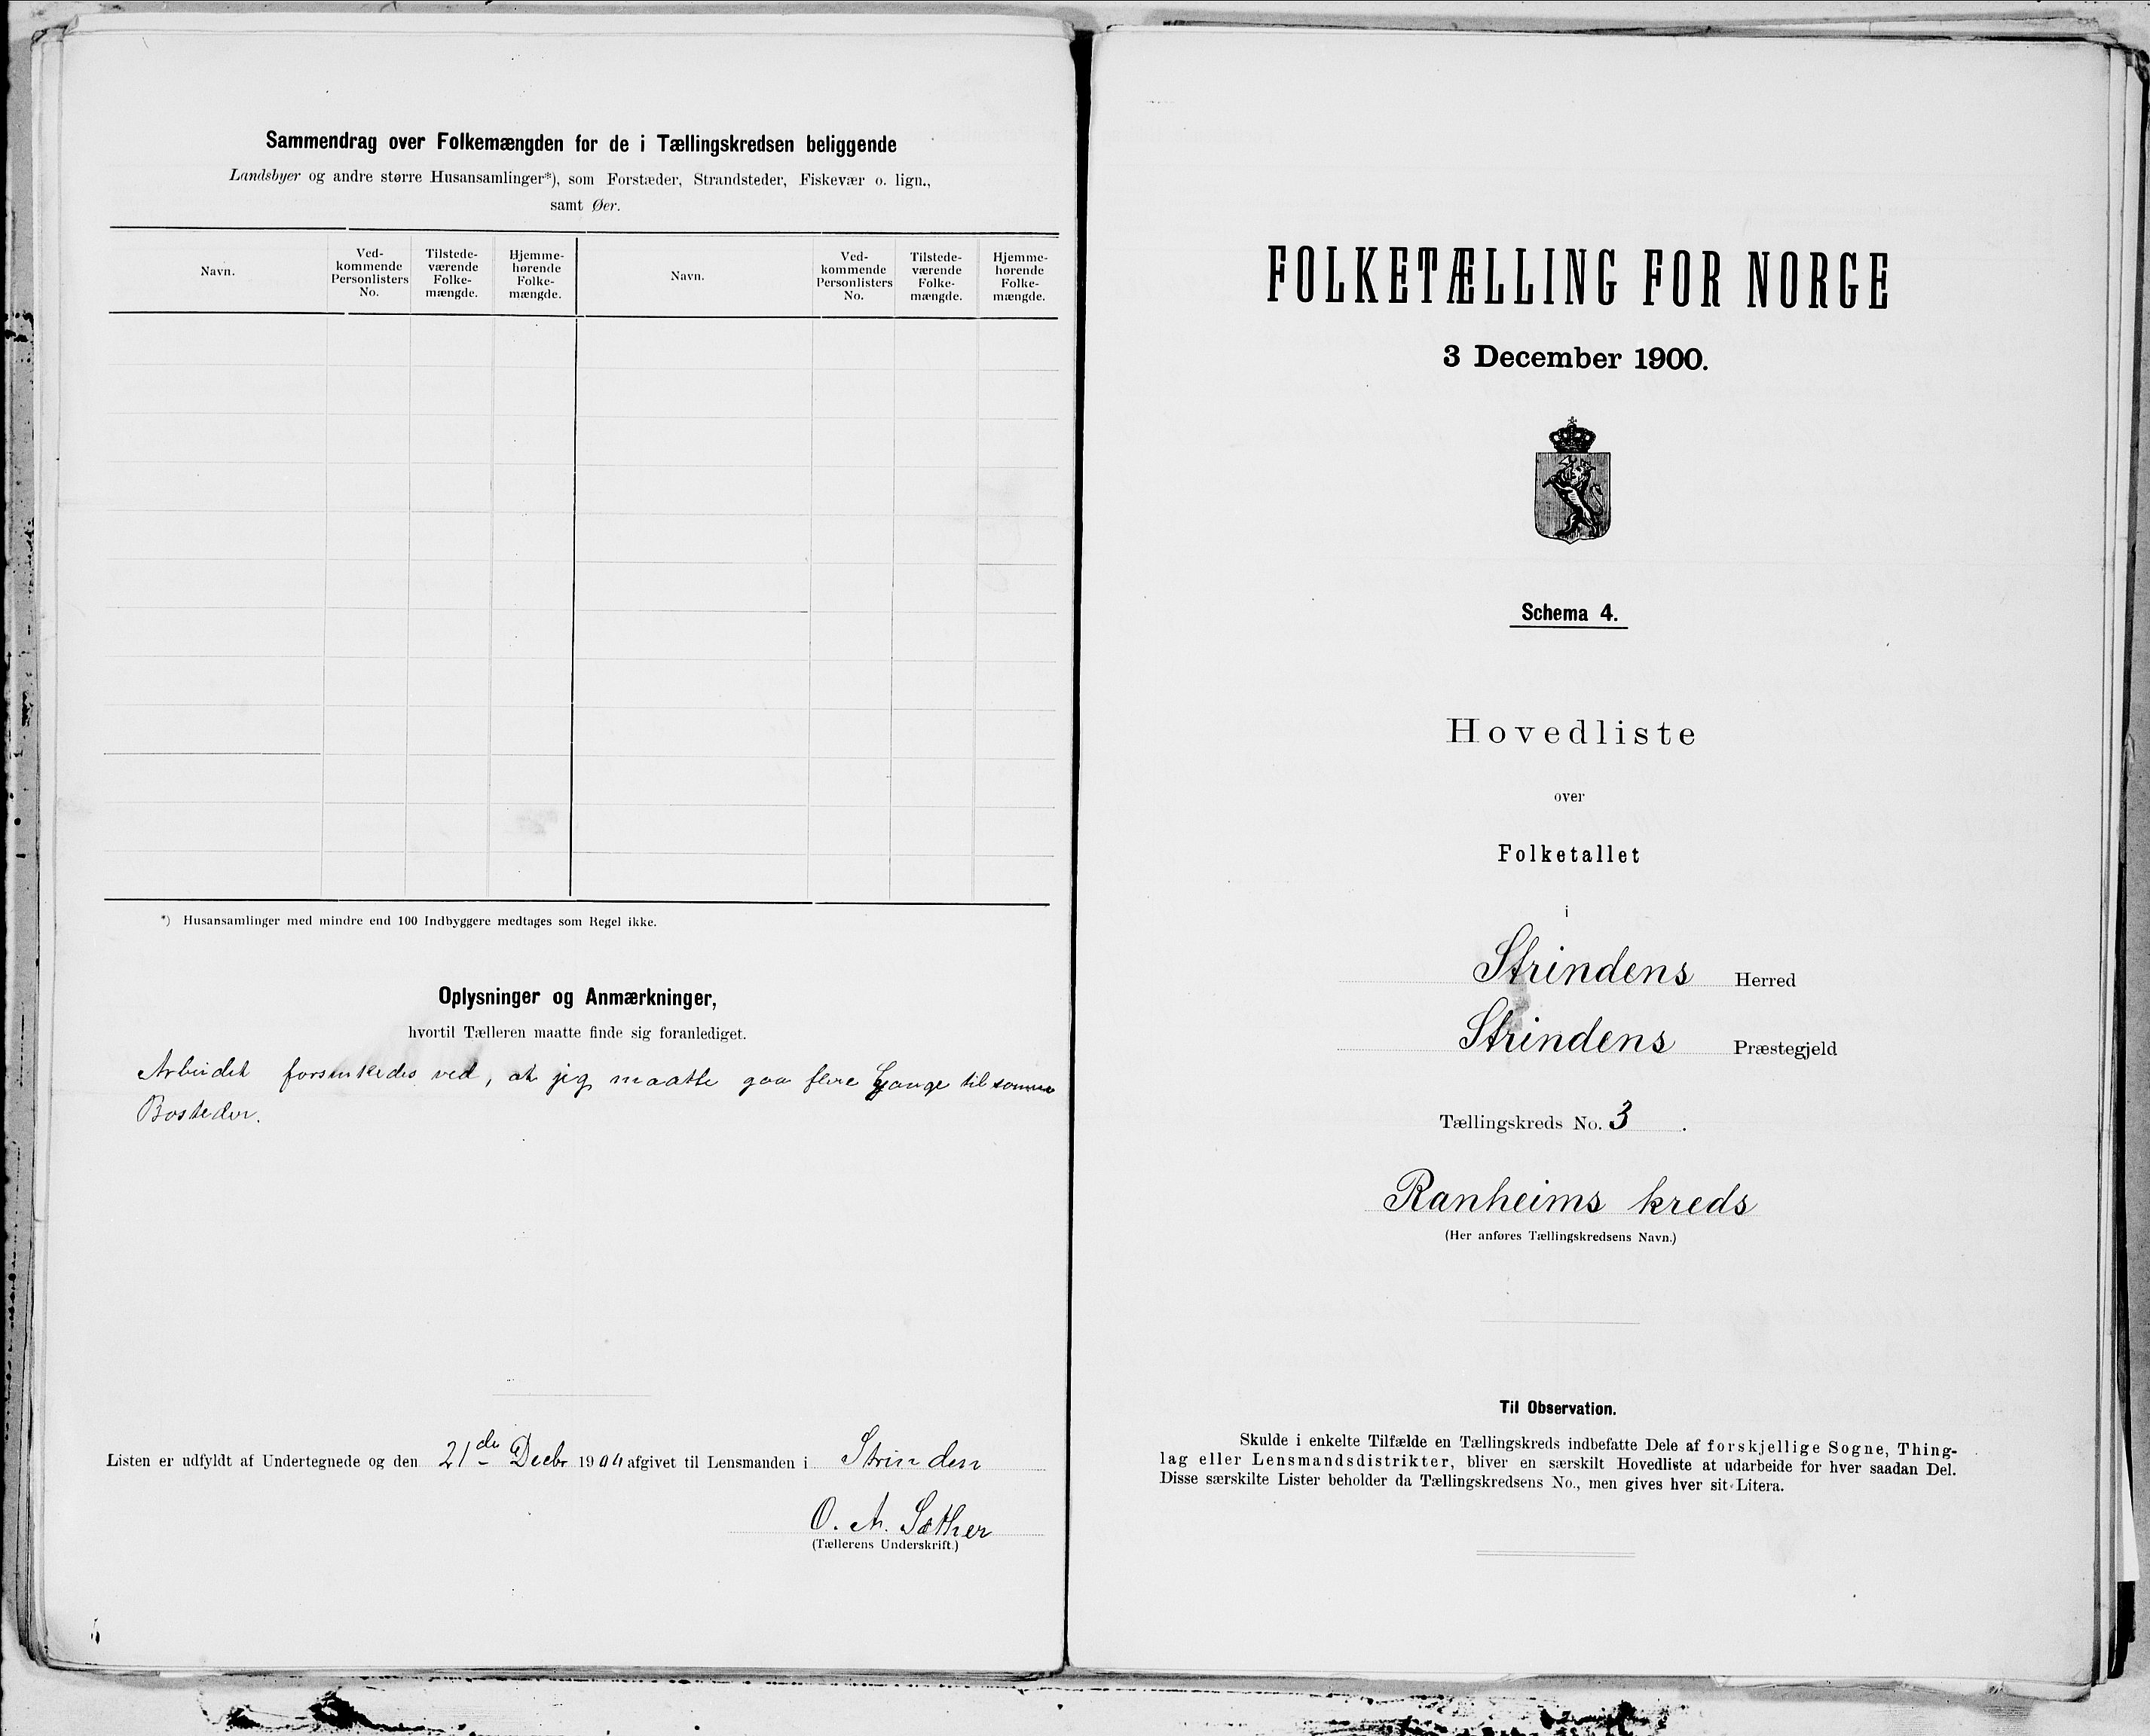 Sammendrag over Folkemængden for de i Tællingskredsen beliggende
Landsbyer og andre større Husansamlinger*), som Forstæder, Strandsteder, Fiskevær o. lign.,
samt Øer.
Navn.
Ved-
kommende
Personlisters
No.
Tilstede-
værende
Folke-
mængde.
Hjemme-
hørende
Folke-
mængde.
Navn.
Ved-
kommende
Personlisters
No.
Tilstede-
værende
Folke-
mængde.
Hjemme-
hørende
Folke-
mængde.
*) Husansamlinger med mindre end 100 Indbyggere medtages som Regel ikke.
Oplysninger og Anmærkninger,
hvortil Tælleren maatte finde sig foranlediget.
Arbeidet forsinkedes ved, at jeg maatte gaa flere Gange til samme
Bosteder.
Listen er udfyldt af Undertegnede og den 21de Decbr 1900 afgivet til Lensmanden i Strinden
O. A. Sæther
(Tællerens Underskrift.)
FOLKETÆLLING FOR NORGE
3 December 1900.
Schema 4.
Hovedliste
over
Folketallet
i
Strindens Herred
Strindens Præstegjeld
Tællingskreds No. 3.
Ranheims kreds
(Her anføres Tællingskredsens Navn.)
Til Observation.
Skulde i enkelte Tilfælde en Tællingskreds indbefatte Dele af forskjellige Sogne, Thing-
lag eller Lensmandsdistrikter, bliver en særskilt Hovedliste at udarbeide for hver saadan Del.
Disse særskilte Lister beholder da Tællingskredsens No., men gives hver sit Litera.